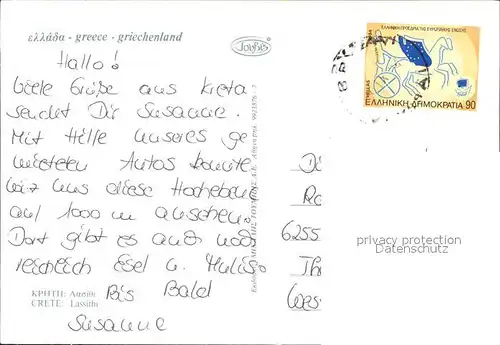 ελλάδα - greece - griechenland
Hallo!
Viele Grüße aus Kreta
sendet Dir Susanne.
Mit Hilfe unseres ge
mieteten Autos konnte
wir uns diese Hochebene
auf 1000 m anschen.
Dort gibt es auch noch
reichlich Esel u. Mulis
Bis Bald
Susanne
ΚΡΗΤΗ:
CRETE: Lassithi
ΕΛΛΗΝΙΚΗ ΠΡΟΕΔΡΙΑ ΤΗΣ ΕΥΡΩΠΑΪΚΗΣ ΕΝΩΣΗΣ
HELLAS
ΕΛΛΗΝΙΚΗ ΔΗΜΟΚΡΑΤΙΑ 90
6255
privacy protection
Datenschutz
Wes